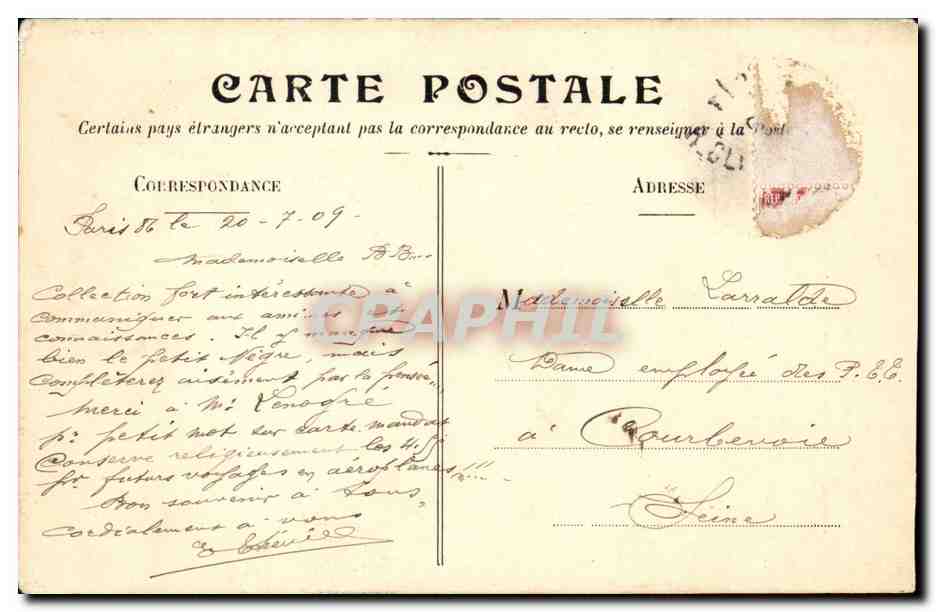 CARTE POSTALE
Certains pays étrangers n'acceptent pas la correspondance au recto, se renseigner à la Poste
CORRESPONDANCE
Paris 86 le 20-7-09-
Mademoiselle B B...
Collection fort intéressante à
communiquer aux amis et
connaissances. Il y manque
bien le petit Nègre, mais
complèterez aisément par la pensée
Merci à Mr Lenogré
pr petit mot sur carte-mandat
Conserve religieusement les 4
pr futurs voyages en aéroplanes!!!
Bon souvenir à tous
cordialement à vous
ADRESSE
Mademoiselle Larralde
Dame employée des P.E.E.
à Courbevoie
Seine
CPARPHIL